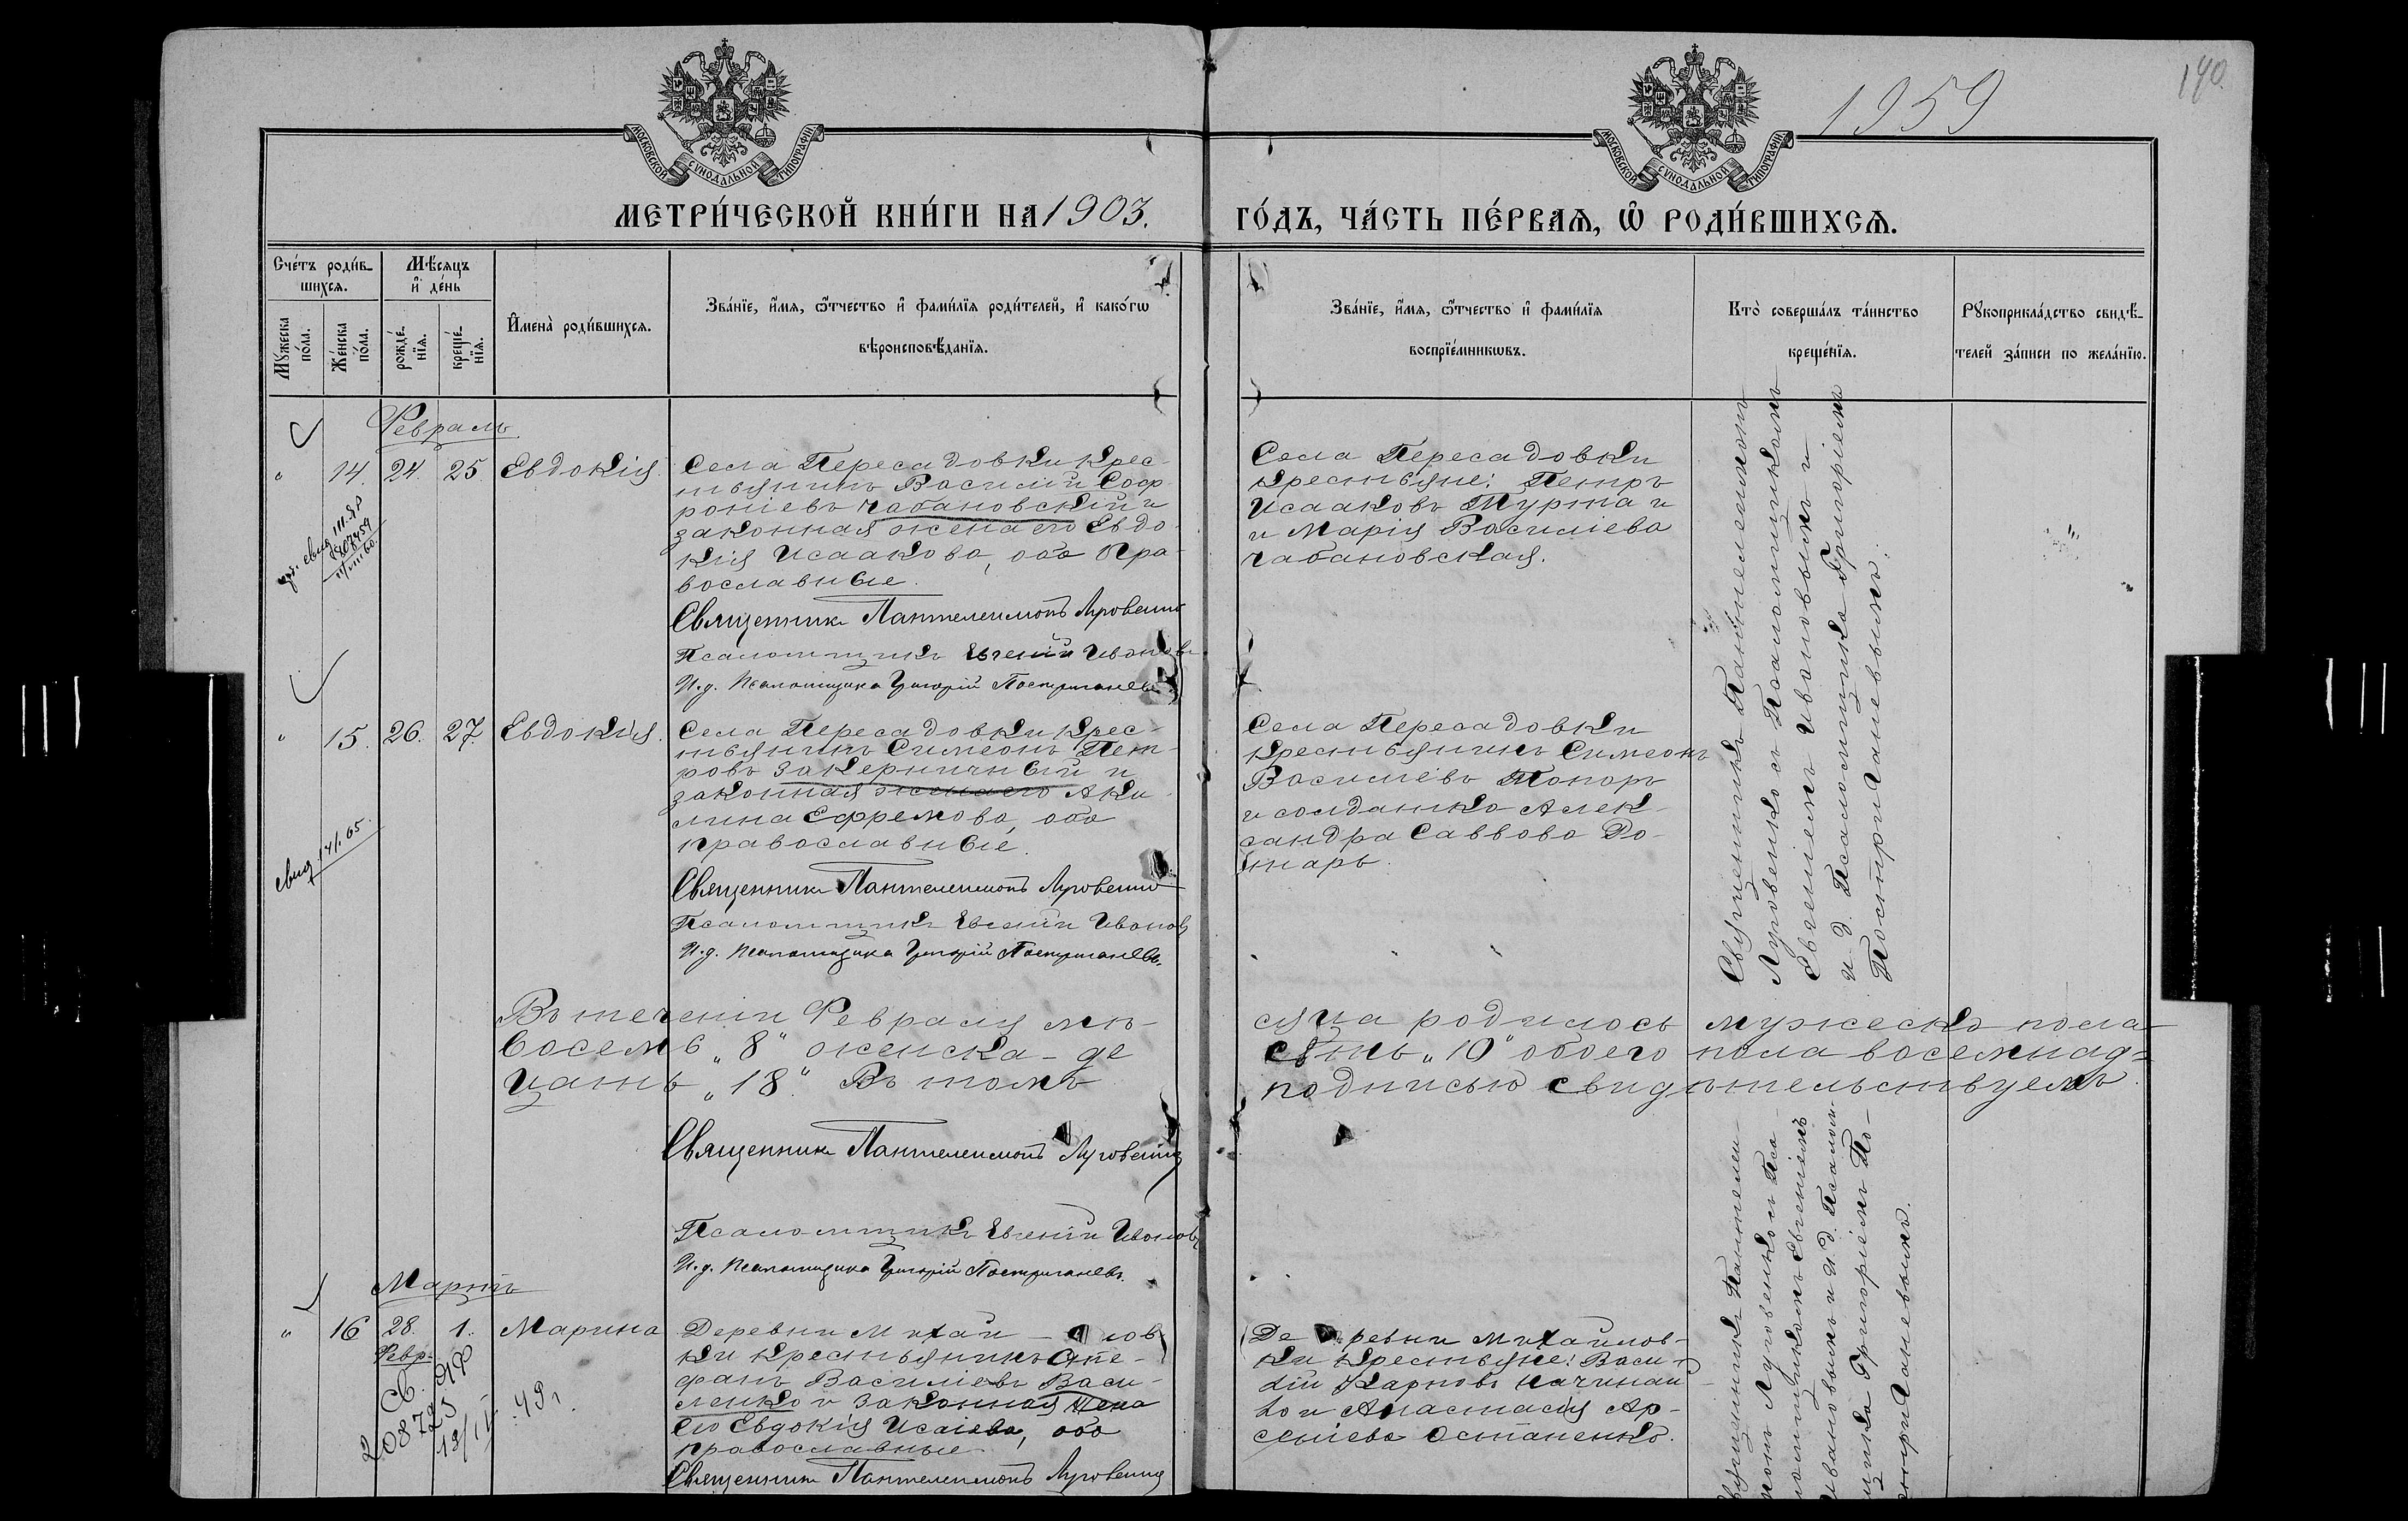 190.
1959
МОСКОВСКОЙ СУНОДАЛЬНОЙ ТИПОГРАФІИ
МОСКОВСКОЙ СУНОДАЛЬНОЙ ТИПОГРАФІИ
МЕТРИ́ЧЕСКОЙ КНИ́ГИ НА 1903. ГО́ДЪ, ЧА́СТЬ ПЕ́РВАѦ, Ѽ РОДИ́ВШИХСѦ.
Сче́тъ роди́в-
шихсѧ.
Мꙋ́жеска
по́ла.
Же́нска
по́ла.
Мѣ́сѧцъ
и҆ де́нь
рожде́-
нїѧ.
креще́-
нїѧ.
И҆мена̀ роди́вшихсѧ.
Зва́нїе, и҆́мѧ, ѻ҆́тчество и҆ фами́лїѧ роди́телей, и҆ како́гѡ
вѣроисповѣ́данїѧ.
Зва́нїе, и҆́мѧ, ѻ҆́тчество и҆ фами́лїѧ
воспрїе́мникѡвъ.
Кто̀ соверша́лъ та́инство
креще́нїѧ.
Рꙋкоприкла́дство свидѣ́-
телей за́писи по жела́нїю.
Февраль
" 14. 24. 25. Евдокія.
Села Пересадовки крес-
тьянинъ Василій Соф-
роніевъ Чабановскій и
законная жена его Евдо-
кія Исаакова, оба пра-
вославные.
Священникъ Пантелеимонъ Луговенко
Псаломщикъ Евгеній Ивановъ
И.д. Псаломщика Григорій Постриганевъ
Села Пересадовки
крестьяне: Петръ
Исааковъ Турта и
и Марія Василіева
Чабановская.
Священникъ Пантелеимонъ
Луговенко съ Псаломщикомъ
Евгеніемъ Ивановымъ и
и.д. Псаломщика Григоріемъ
Постриганевымъ.
" 15. 26. 27. Евдокія.
Села Пересадовки крес-
тьянинъ Симеонъ Пет-
ровъ Закерничный и
законная жена его Аки-
лина Ефремова, оба
православные.
свид 141.65.
Священникъ Пантелеимонъ Луговенко
Псаломщикъ Евгеній Ивановъ
И.д. Псаломщика Григорій Постриганевъ.
Села Пересадовки
крестьянинъ Симеонъ
Василіевъ Топоръ
и солдатка Алек-
сандра Саввова Ро-
тарь.
Въ теченіи Февраля мѣ-сяца родилось мужеска пола-
восемь „8" женска-десять „10" обоего пола восемнад=
цать „18". Въ томъ подписью свидѣтельствуемъ.
Священникъ Пантелеимонъ Луговенко
Псаломщикъ Евгеній Ивановъ
И.д. Псаломщика Григорій Постриганевъ.
Мартъ
" 16 28. 1. Марина
Февр.
Св. ЯФ
208725
18/IV 49 г.
Деревни Михай-лов-
ки крестьянинъ Сте-
фанъ Василіевъ Васи-
ленко и законная жена
его Евдокія Исаіева, оба
православные
Священникъ Пантелеимонъ Луговенко
Деревни Михайлов-
ки крестьяне: Васи-
лій Карповъ
и Анастасія Ар-
сеніева Остапенко.
Священникъ Пантелеи-
монъ Луговенко съ Пса-
ломщикомъ Евгеніемъ
Ивановымъ и И.д. Псалом-
щика Григоріемъ По-
стриганевымъ.